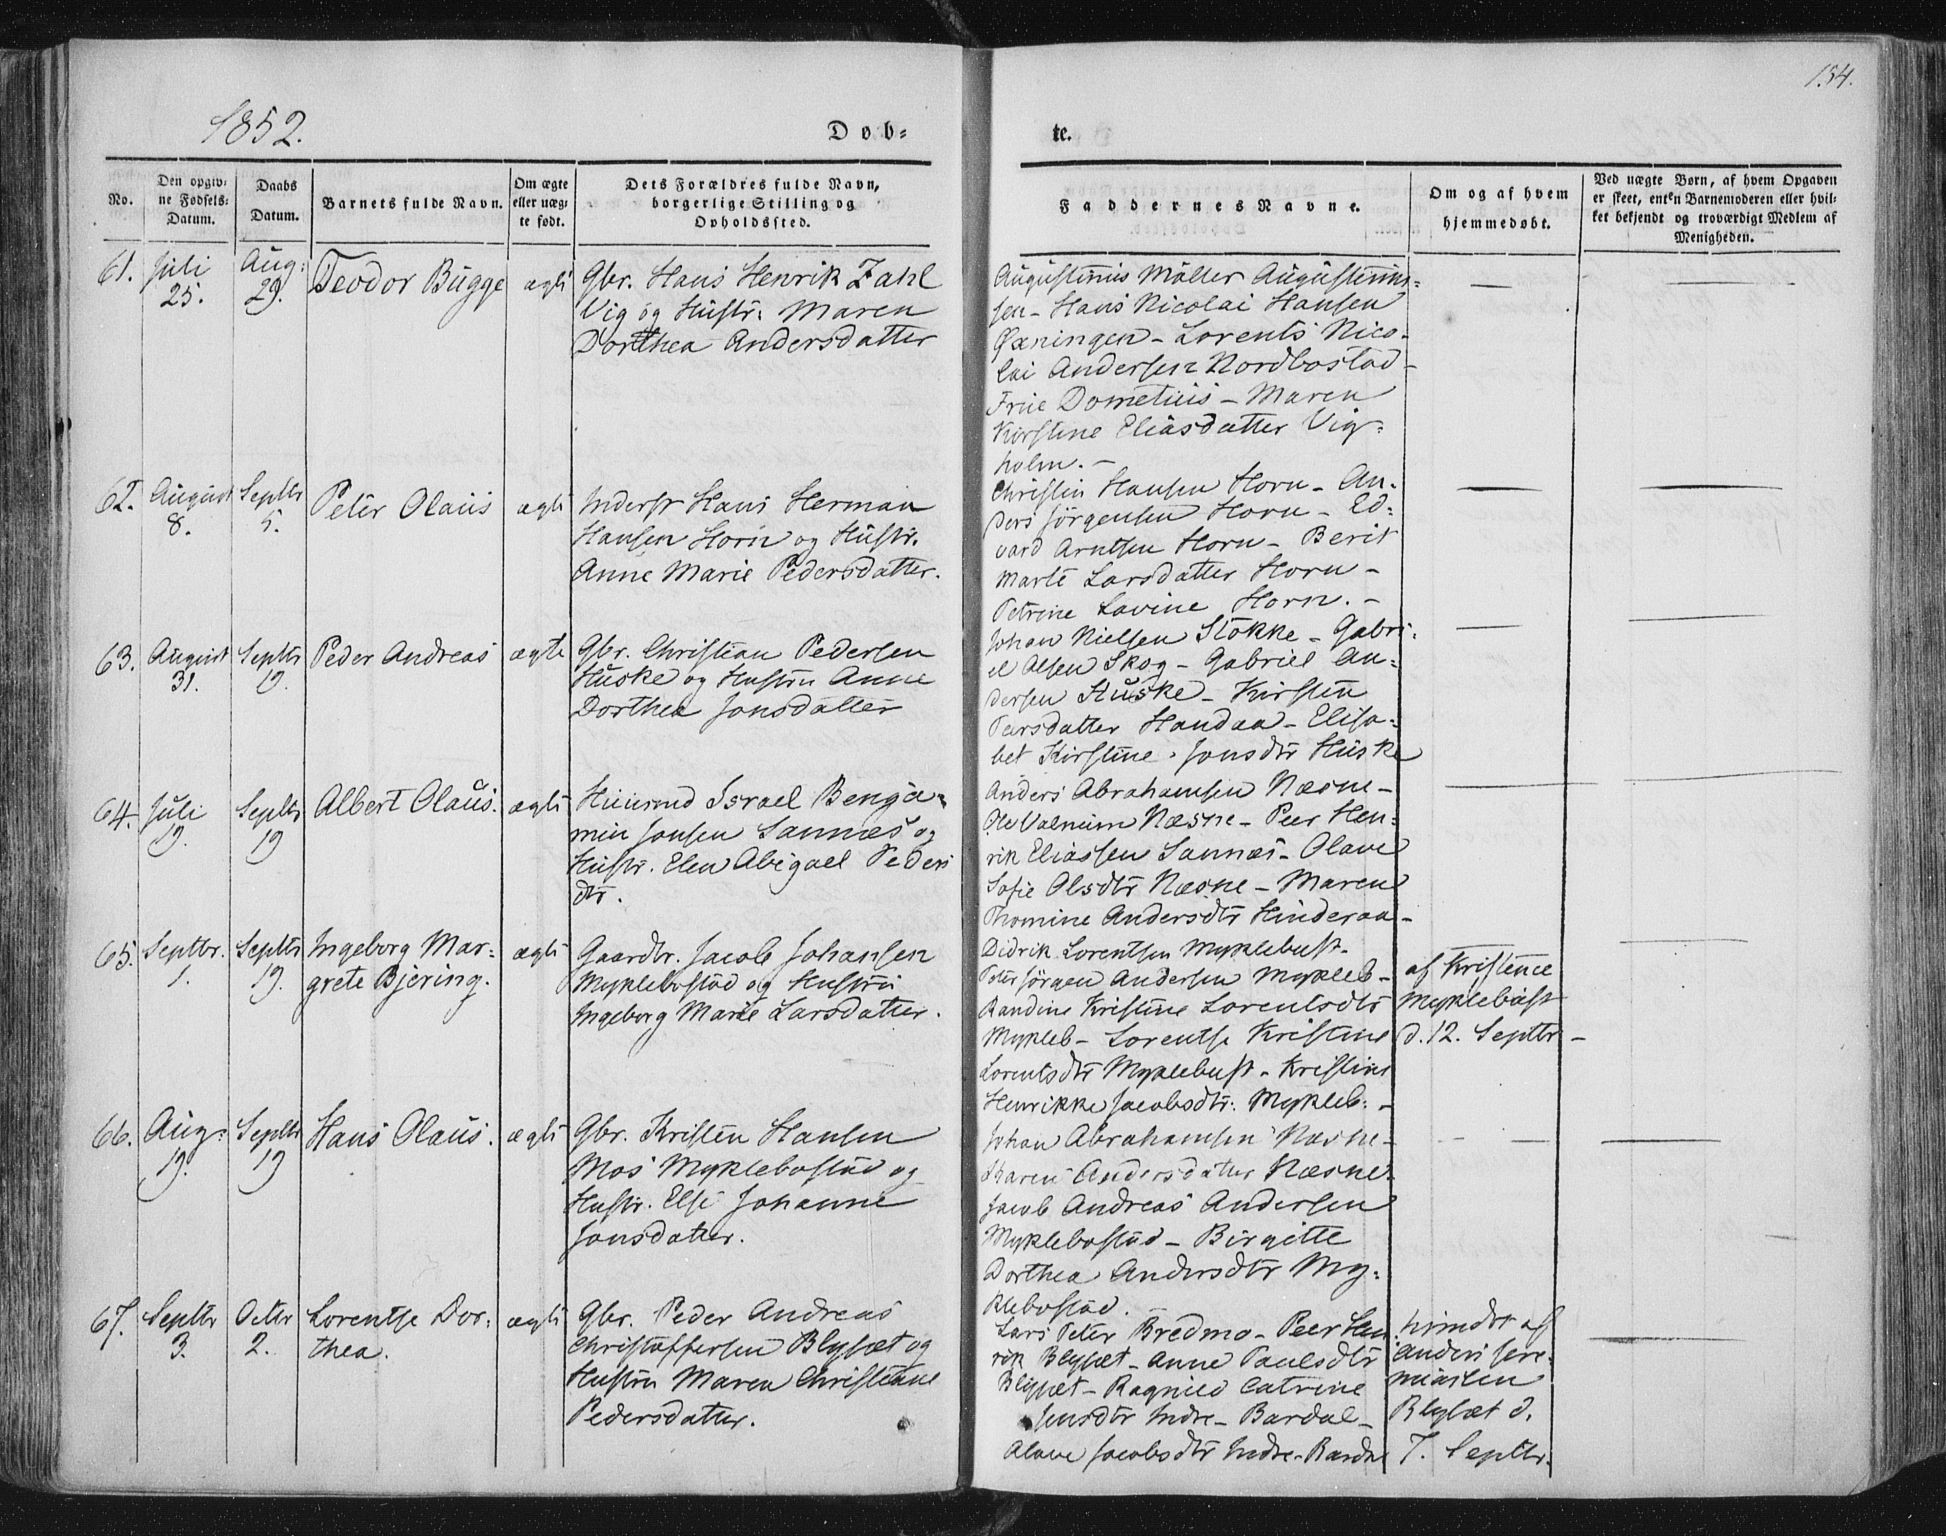 154.
1852.
Døb=
te.
No.
Den opgiv=
ne Fødsels=
Datum.
Daabs
Datum.
Barnets fulde Navn.
Om ægte
eller uæg=
te født.
Dets Forældres fulde Navn,
borgerlige Stilling og
Opholdssted.
Faddernes Navne.
Om og af hvem
hjemmedøbt.
Ved uægte Børn, af hvem Opgaven
er skeet, enten Barnemoderen eller hvil=
ket bekjendt og troværdigt Medlem af
Menigheden.
61.
Juli
25.
Aug:
29.
Teodor Bugge
ægte
Gbr. Hans Henrik Zahl
Vig og Hustr: Maren
Dorthea Andersdatter
Augustinus Møller Augustinus=
sen - Hans Nicolai Hansen
Øxningen - Lorents Nico=
lai Andersen Nordbostad -
Frue Dometius - Maren
Kirstine Eliasdatter Vig=
holm. -
62.
August
8.
Septbr
5.
Peter Olaus
ægte
Inderst Hans Herman
Hansen Horn og Hustr.
Anne Marie Pedersdatter.
Christen Hansen Horn - An=
ders Jørgensen Horn - Ed=
vard Arntsen Horn - Berit
Marte Larsdatter Horn -
Petrine Lovine Horn. -
63.
August
31.
Septbr
19.
Peder Andreas
ægte
Gbr. Christian Pedersen
Huske og Hustru Anne
Dorthea Jonsdatter
Johan Nielsen Stokke - Gabri=
el Olsen Skog - Gabriel An=
dersen Huske - Kirsten
Pærsdatter Handaa - Elisa=
bet Kirstine Jonsdtr Huske
64.
Juli
19.
Septbr
19
Albert Olaus.
ægte
Huusmd Israel Benja=
min Jonsen Sannæs og
Hustr. Elen Abigael Peders
dtr.
Anders Abrahamsen Næsne -
Ole Valnum Næsne - Peer Hen=
rik Eliassen Sannæs - Olave
Sofie Olsdtr Næsne - Maren
Thomine Andersdtr Hinderaa -
65.
Septbr.
1.
Septbr
19.
Ingeborg Mar=
grete Bjering.
ægte
Gaardbr. Jacob Johansen
Myklebostad og Hustru
Ingeborg Marie Larsdatter.
Didrik Lorentsen Myklebust -
Peter Jørgen Andersen Mykleb -
Randine Kristine Lorentsdtr
Mykleb - Lorentse Kristine
Lorentsdtr Myklebust - Kristine
Henrikke Jacobsdtr: Mykleb: -
af Kristence
Myklebust
d. 12. Septbr -
66.
Aug:
19.
Septbr
19
Hans Olaus.
ægte
Gbr. Kristen Hansen
Mos Myklebostad og
Hustr. Else Johanne
Jonsdatter.
Johan Abrahamsen Næsne -
Karen Andersdatter Næsne -
Jacob Andreas Andersen
Myklebostad - Birgitte
Dorthea Andersdtr My=
klebostad.
67.
Septbr
3.
Octbr
2.
Lorentse Dor=
thea.
ægte
Gbr. Peder Andreas
Christoffersen Blysæt og
Hustru Maren Christiane
Pedersdatter.
Lars Peter Bredmo - Peer Hen
rik Blysæt - Anne Paulsdtr
Blysæt - Ragnild Catrine
Jensdtr Indre - Bardal -
Olave Jacobsdtr Indre - Bardal
af
Anders Jere=
miassen
Blysæt d.
7. Septbr.